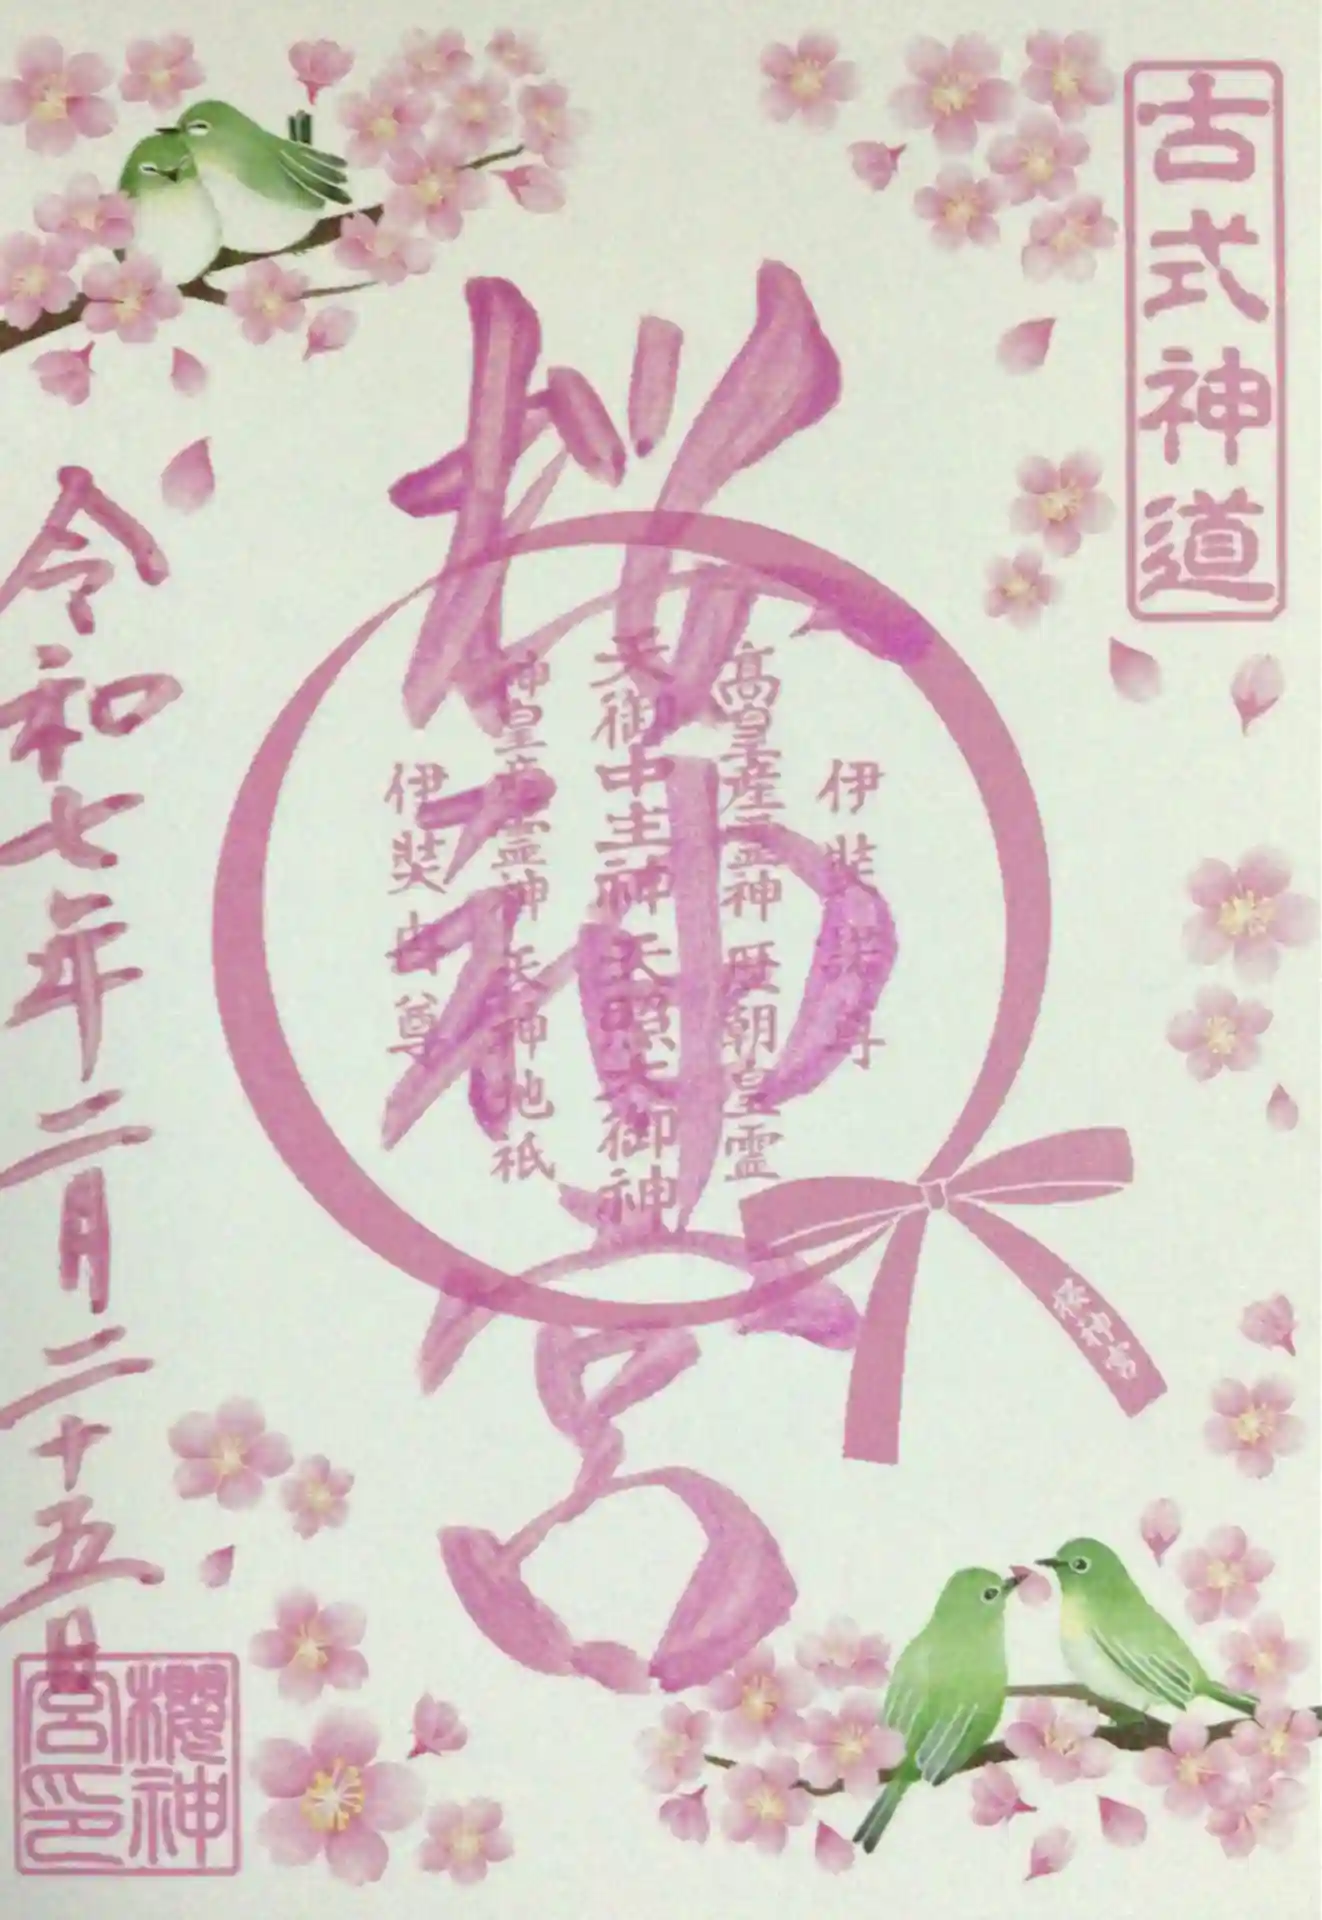 古式神道
桜神宮
伊弉諾尊
高皇産霊神 歴朝皇霊
天御中主神 天照大御神
神皇産霊神 天神地祇
伊弉冉尊
櫻神宮
令和七年二月二十五日
櫻神
宮印